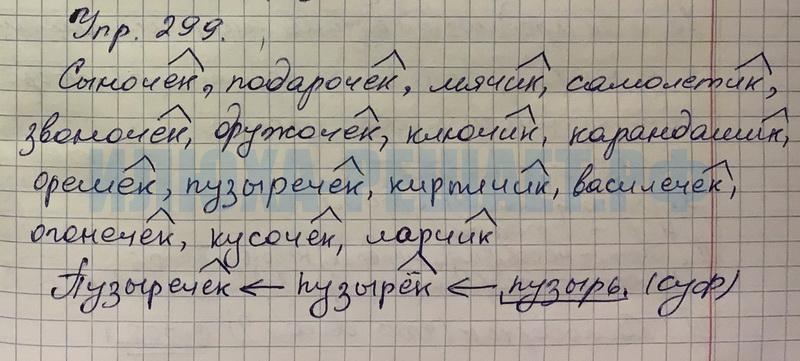 Упр. 299.
Сыночек, подарочек, мячик, самолетик,
звоночек, дружочек, ключик, карандашик,
орешек, пузыречек, кирпичик, василечек,
огонечек, кусочек, ларчик
Пузыречек ← пузырёк ← пузырь. (суф)
ИЛЮХА-РЕШАЕТ.РФ